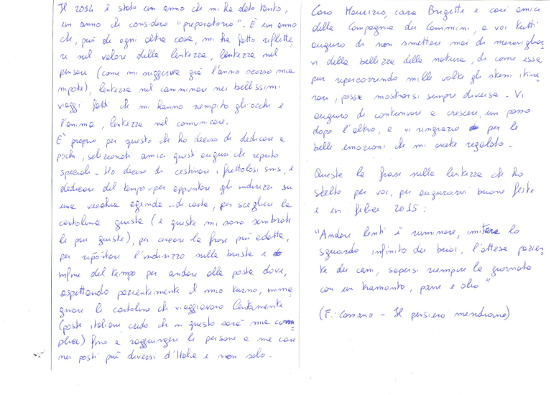 Il 2014 è stato un anno che mi ha dato tanto,
un anno che considero "preparatorio". È un anno
che, più di ogni altra cosa, mi ha fatto riflette
re sul valore della lentezza, lentezza nel
pensare (come mi suggeriva già l'anno scorso mia
nipote), lentezza nel camminare nei bellissimi
viaggi fatti che mi hanno riempito gli occhi e
l'anima, lentezza nel comunicare.
E' proprio per questo che ho deciso di dedicare a
pochi, selezionati amici questi auguri che reputo
speciali. Ho deciso di cestinare i frettolosi sms, e
dedicare del tempo per appuntare gli indirizzi su
una vecchia agenda di carta, per scegliere la
cartolina giusta (e queste mi sono sembrate
le più giuste), per creare la frase più adatta,
per riportare l'indirizzo sulla busta e
infine del tempo per andare alla posta dove,
aspettando pazientemente il mio turno, imma
ginare la cartolina che viaggiava lentamente
(poste italiane credo che in questo sarà mia com
plice) fino a raggiungere le persone a me care
nei posti più diversi d'Italia e non solo.
Caro Maurizio, cara Brigitte e cari amici
della Compagnia dei Cammini, a voi tutti
auguro di non smettere mai di meravigliar
vi della bellezza della natura, di come essa,
pur ripercorrendo mille volte gli stessi itine
rari, possa mostrarsi sempre diversa. Vi
auguro di continuare a crescere, un passo
dopo l'altro, e vi ringrazio per le
belle emozioni che mi avete regalato.
Queste la frase sulla lentezza che ho
scelto per voi, per augurarvi buone feste
e un felice 2015:
"Andare lenti è ruminare, imitare lo
sguardo infinito dei buoi, l'attesa pazien
te dei cani, sapersi riempire la giornata
con un tramonto, pane e olio"
(F. Cassano - Il pensiero meridiano)